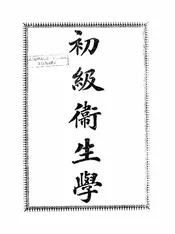 初級衞生學